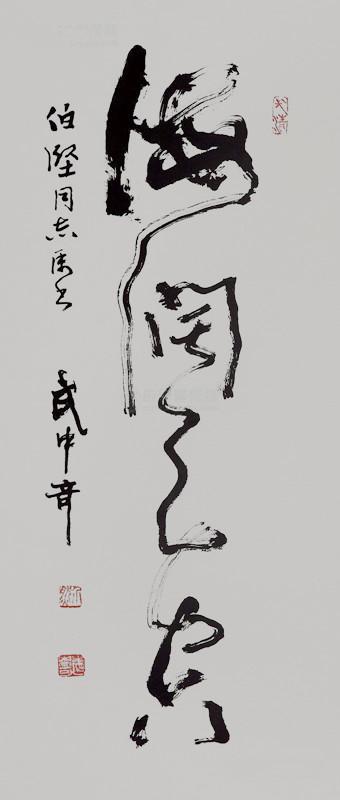 海阔天空
伯坚同志属书
武中奇